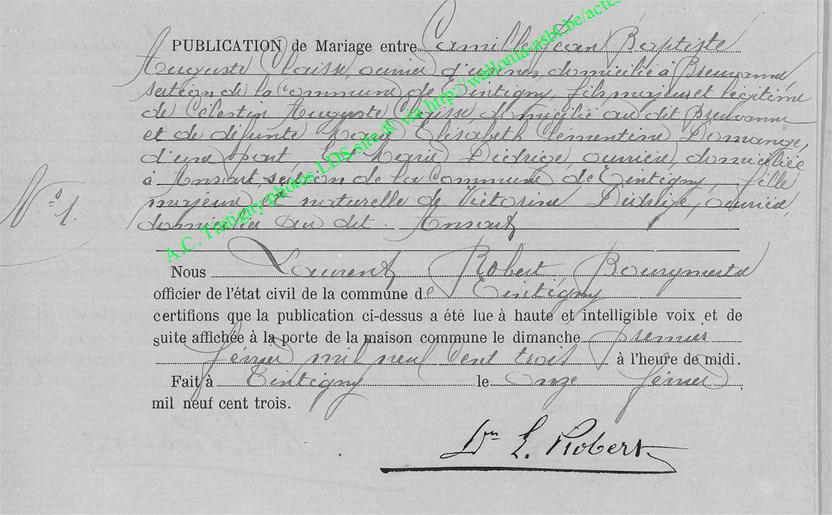 PUBLICATION de Mariage entre Camille Jean Baptiste
Auguste Claisse, ouvrier d'usines, domicilié à Breuvanne,
section de la commune de Tintigny, fils majeur et légitime
de Célestin Auguste Claisse domicilié au dit Breuvanne
et de défunte Marie Elisabeth Clémentine Domange,
d'une part, Marie Dédrige, ouvrière, domiciliée
à Ansart section de la Commune de Tintigny fille
majeure et naturelle de Victorine Dédrige, ouvrière,
domiciliée au dit Ansart
N° 1.
Nous Laurent Robert Bourgmestre
officier de l'état civil de la commune de Tintigny
certifions que la publication ci-dessus a été lue à haute et intelligible voix et de
suite affichée à la porte de la maison commune le dimanche premier
février mil neuf cent trois à l'heure de midi.
Fait à Tintigny le onze février
mil neuf cent trois.
L. Robert
A.C. Tintigny photos LDS site via http://wallonia-asbl.be/actes